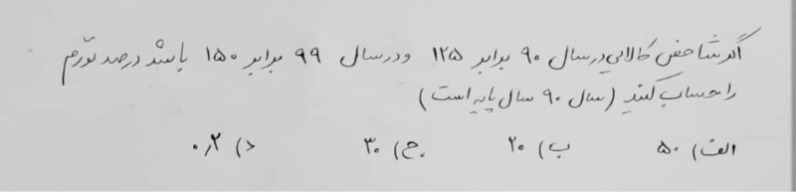 اگر شاخص کالایی در سال ۹۰ برابر ۱۲۵ و در سال ۹۹ برابر ۱۵۰ باشد درصد تورم
را حساب کنید (سال ۹۰ سال پایه است)
الف) ۵۰ ب) ۲۰ ج) ۳۰ د) ۰٫۲